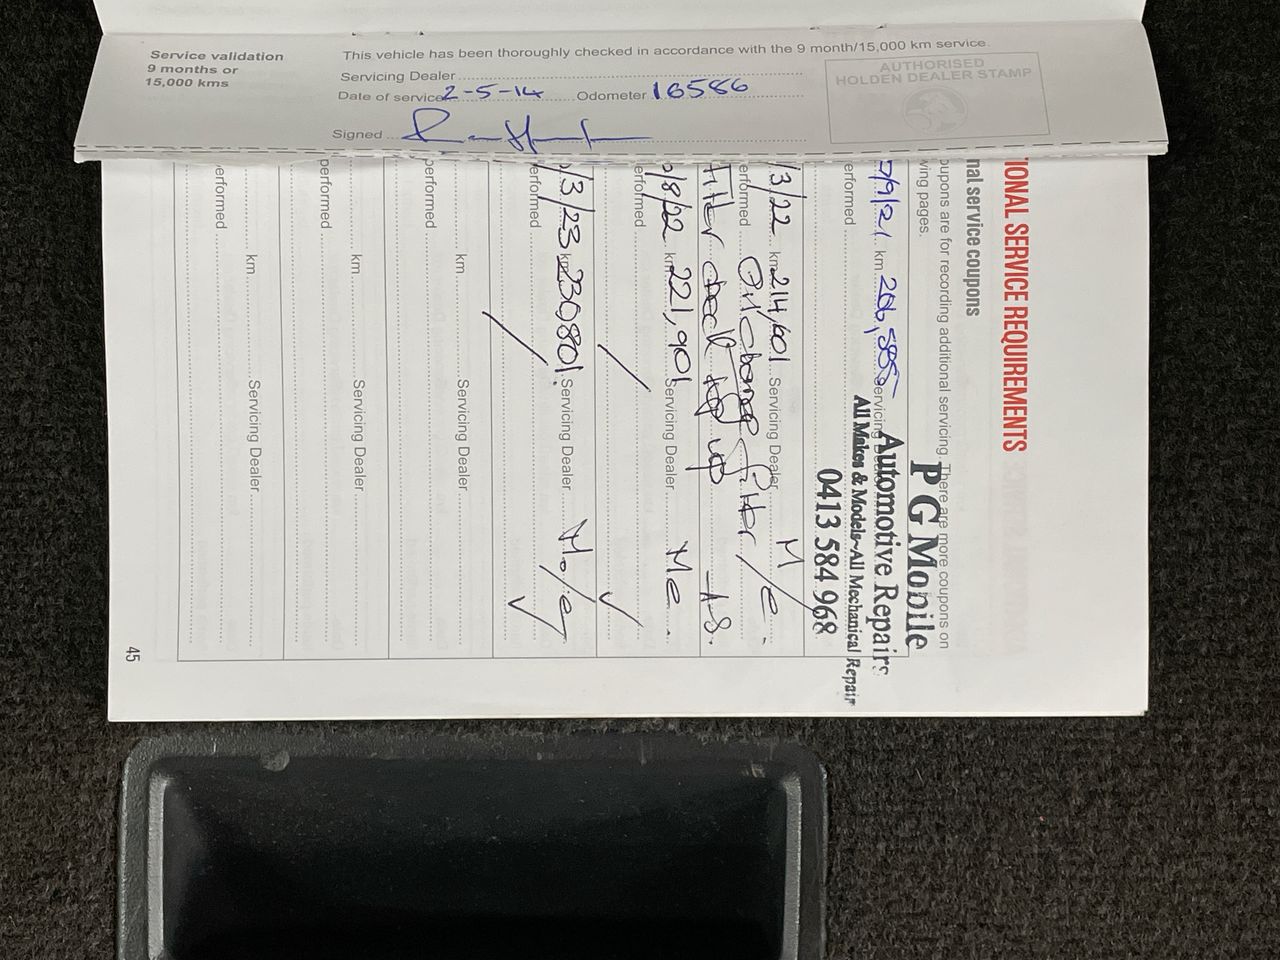 Service validation
9 months or
15,000 kms
This vehicle has been thoroughly checked in accordance with the 9 month/15,000 km service.
Servicing Dealer
Date of service 2-5-14 Odometer 16586
Signed
AUTHORISED
HOLDEN DEALER STAMP
IONAL SERVICE REQUIREMENTS
nal service coupons
oupons are for recording additional servicing. There are more coupons on
wing pages.
/9/21 km 206,585 Servicing
erformed
PG Mobile
Automotive Repairs
All Makes & Models~All Mechanical Repair
0413 584 968
/3/22 km 214,601 Servicing Dealer M/e.
erformed Oil change filter/
Filter check top up A-S.
/8/22 km 221,901 Servicing Dealer M.e.
erformed
/3/23 km 230,801 Servicing Dealer M/e
erformed
km Servicing Dealer
performed
km Servicing Dealer
performed
km Servicing Dealer
erformed
45